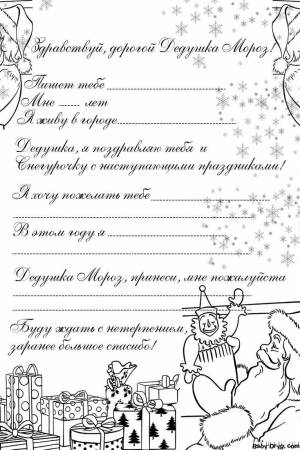 Здравствуй, дорогой Дедушка Мороз!
Пишет тебе
Мне ____ лет
Я живу в городе
Дедушка, я поздравляю тебя и
Снегурочку с наступающими праздниками!
Я хочу пожелать тебе
В этом году я
Дедушка Мороз, принеси, мне пожалуйста
Буду ждать с нетерпением,
заранее большое спасибо!